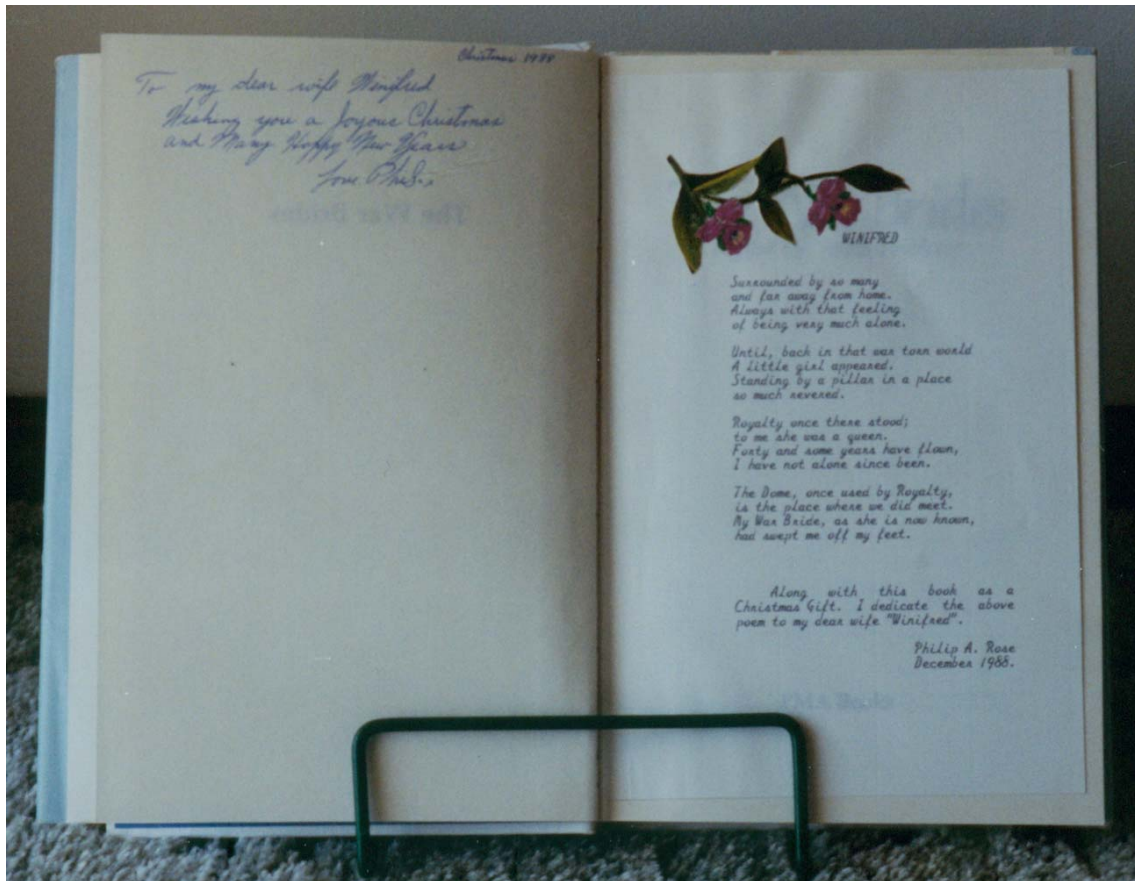 Christmas 1988
To my dear wife Winifred
Wishing you a Joyous Christmas
and Many Happy New Years
Love Phil
The War Brides
WINIFRED
Surrounded by so many
and far away from home.
Always with that feeling
of being very much alone.
Until, back in that war torn world
A little girl appeared.
Standing by a pillar in a place
so much revered.
Royalty once there stood;
to me she was a queen.
Forty and some years have flown,
I have not alone since been.
The Dome, once used by Royalty,
is the place where we did meet.
My War Bride, as she is now known,
had swept me off my feet.
Along with this book as a
Christmas Gift. I dedicate the above
poem to my dear wife "Winifred".
Philip A. Rose
December 1988.